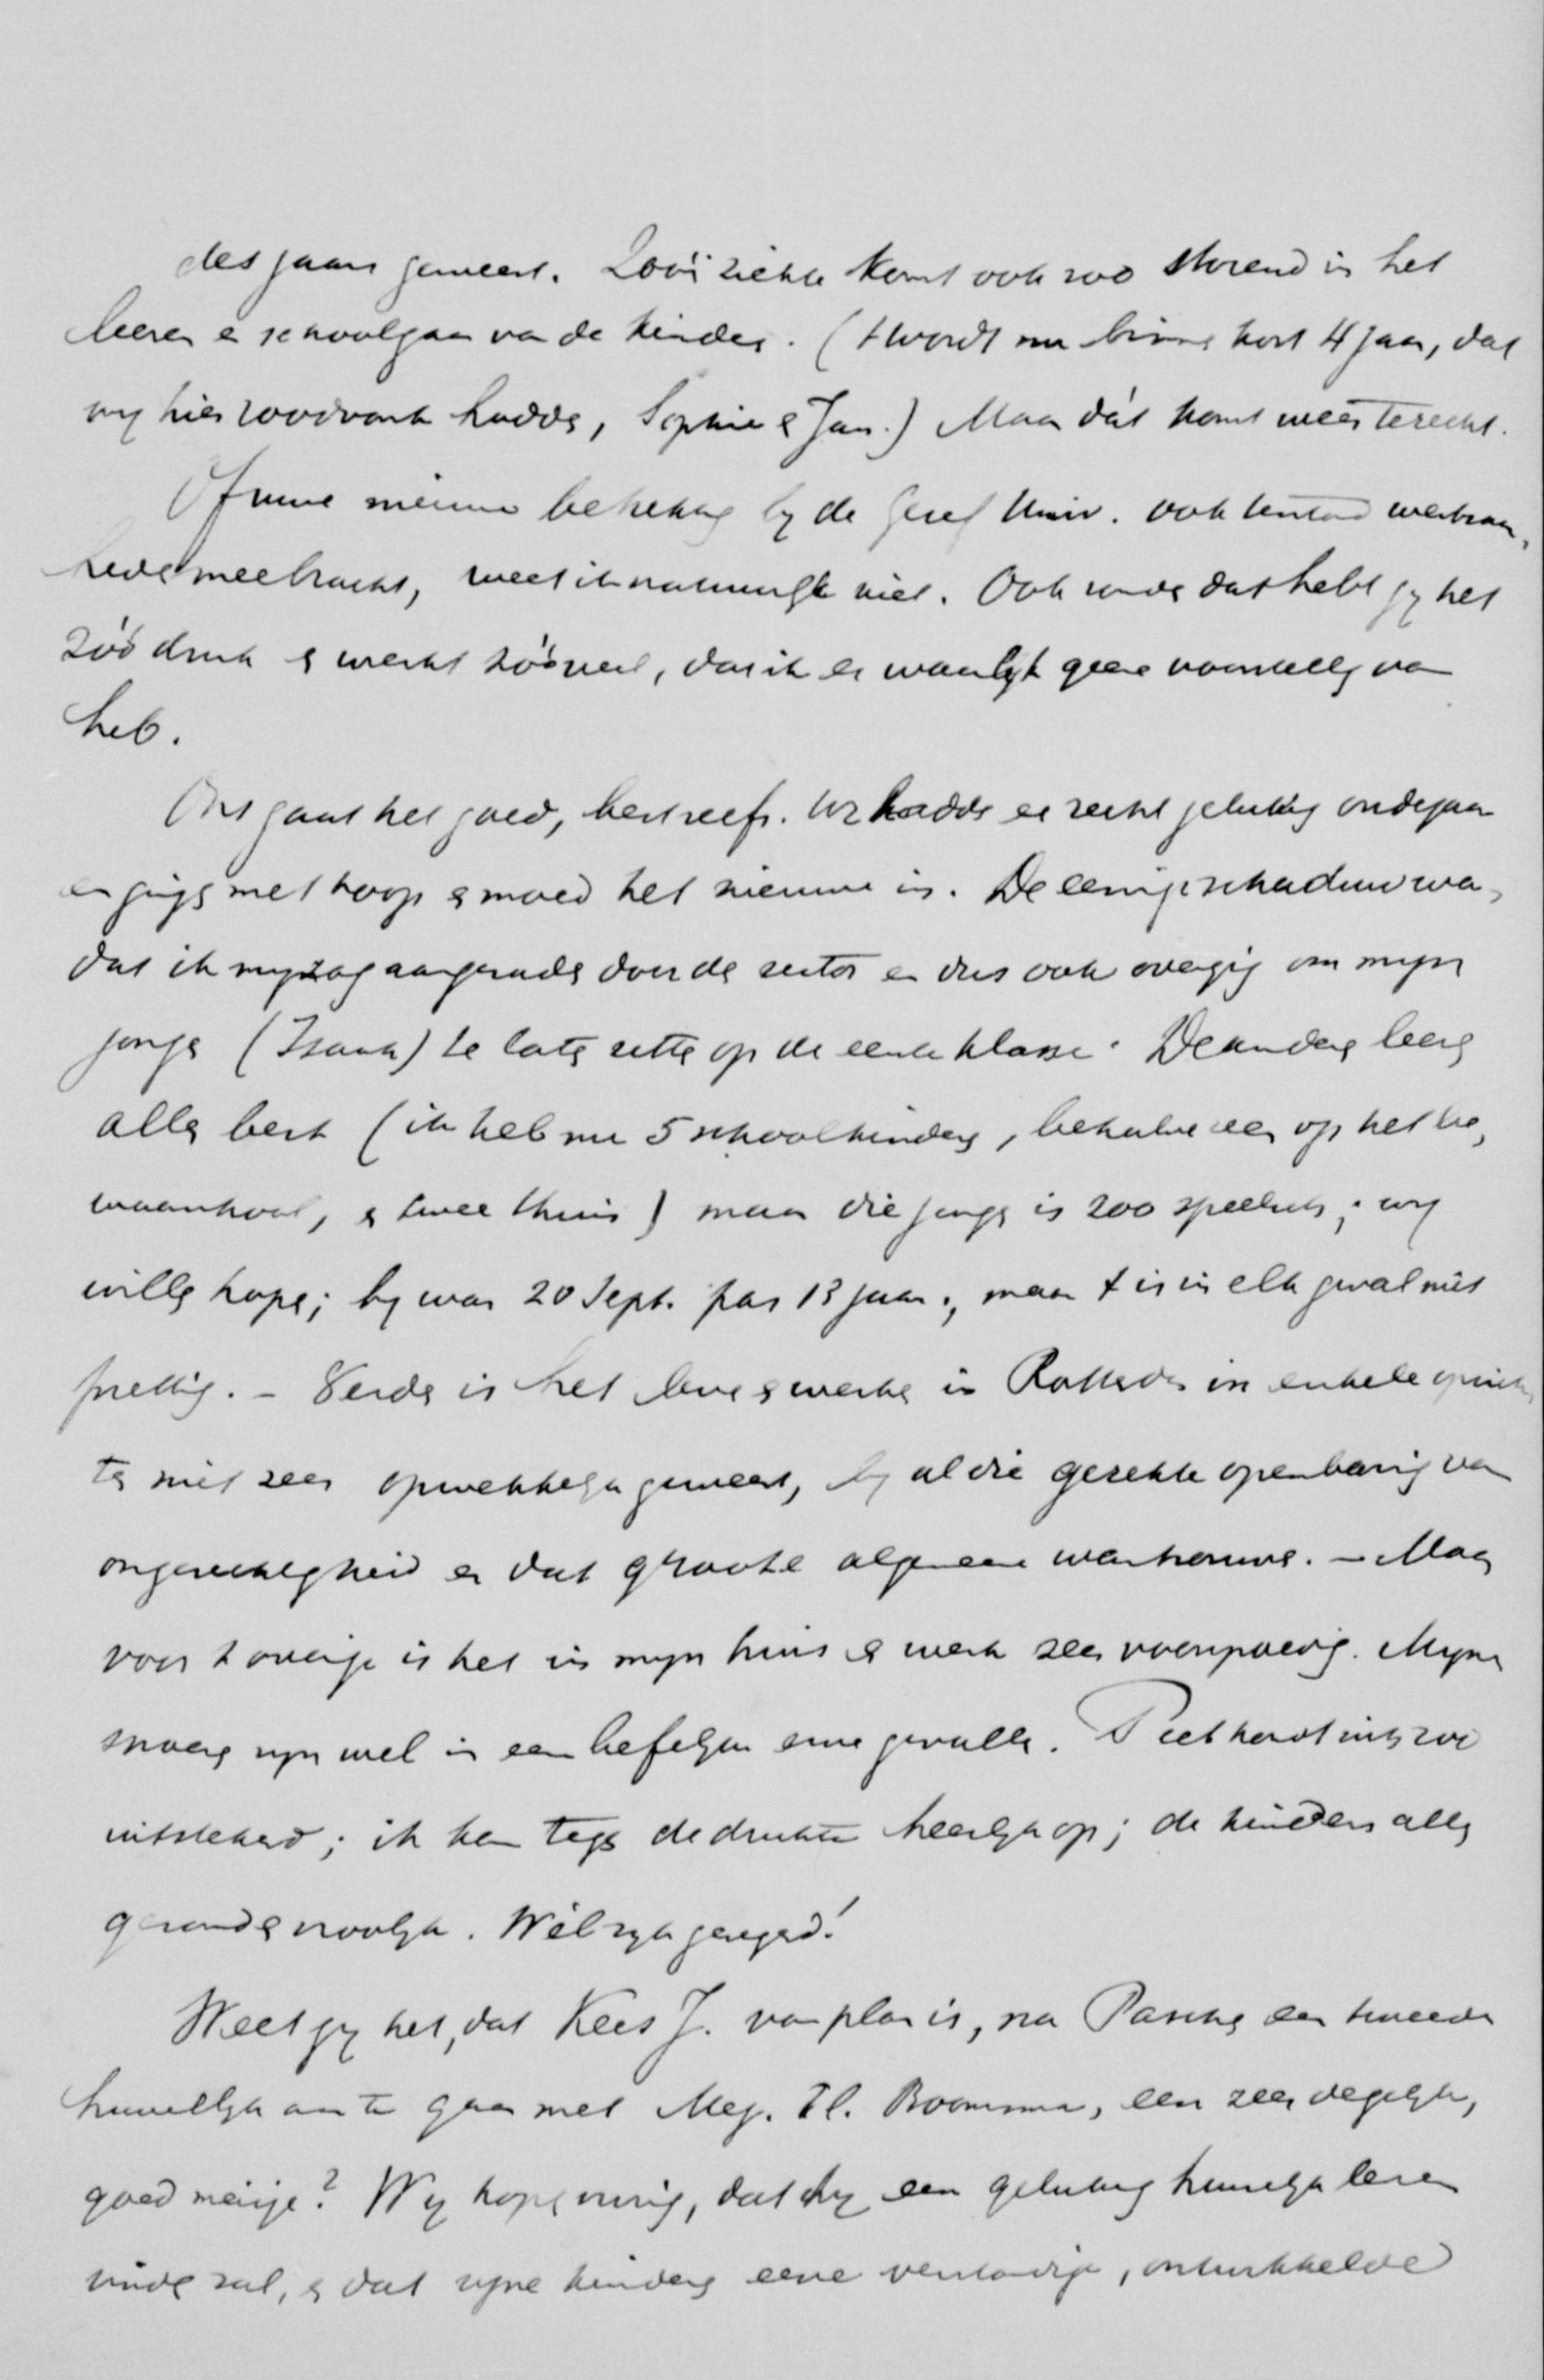 des jaars geweest. Zoo'n ziekte komt ook zoo storend in het
leeren en schoolgaan van de kinderen. (t wordt nu binnen kort 4 jaar, dat
wy hier roodvonk hadden, Sophie en Jan.) Maar dát komt weer terecht.
Of uwe nieuwe betrekking by de Geref Univ. ook tentam werkzaam-
heden meebracht, weet ik natuurlyk niet. Ook zonder dat hebt jy het
zóó druk en werkt zóóveel, dat ik er waarlyk geene voorstelling van
heb.
Ons gaat het goed, beste neef. We hadden een recht gelukkig oudejaar
en gingen met hoop en moed het nieuwe in. De eenige schaduw was,
dat ik my zag aangeraden door den rector en dus ook overging om myn
jongen (Izaak) te laten zetten op de eerste klasse. De anderen leeren
allen best (ik heb nu 5 schoolkinderen, behalve een op het be-
waarschool, en twee thuis) maar die jongen is zoo speelsch; wy
willen hopen; hy was 20 Sept. pas 13 jaar, maar t is in elk geval niet
prettig. – Verder is het leven en werken in Rotterdam in enkele opzich-
ten niet zeer opwekkelyk geweest, by al die gerekte openbaring van
ongerechtigheid en dat groote algemeene wantrouwen. – Maar
voor t overige is het in myn huis en werk zeer voorspoedig. Myne
snoeren zyn wel in een liefelyke erve gevallen. Piet houdt zich zoo
uitstekend; ik kan tegen de drukte heerlyk op; de kinders allen
gezond en vroolyk. Wèl ryk gezegend!
Weet jy het, dat Kees J. van plan is, na Paschen een tweede
huwelyk aan te gaan met Mej. El. Boomsma, een zeer degelyk,
goed meisje? Wy hopen vurig, dat hy een gelukkig huwelyksleven
vinden zal, en dat zyne kinderen eene verstandige, ontwikkelde